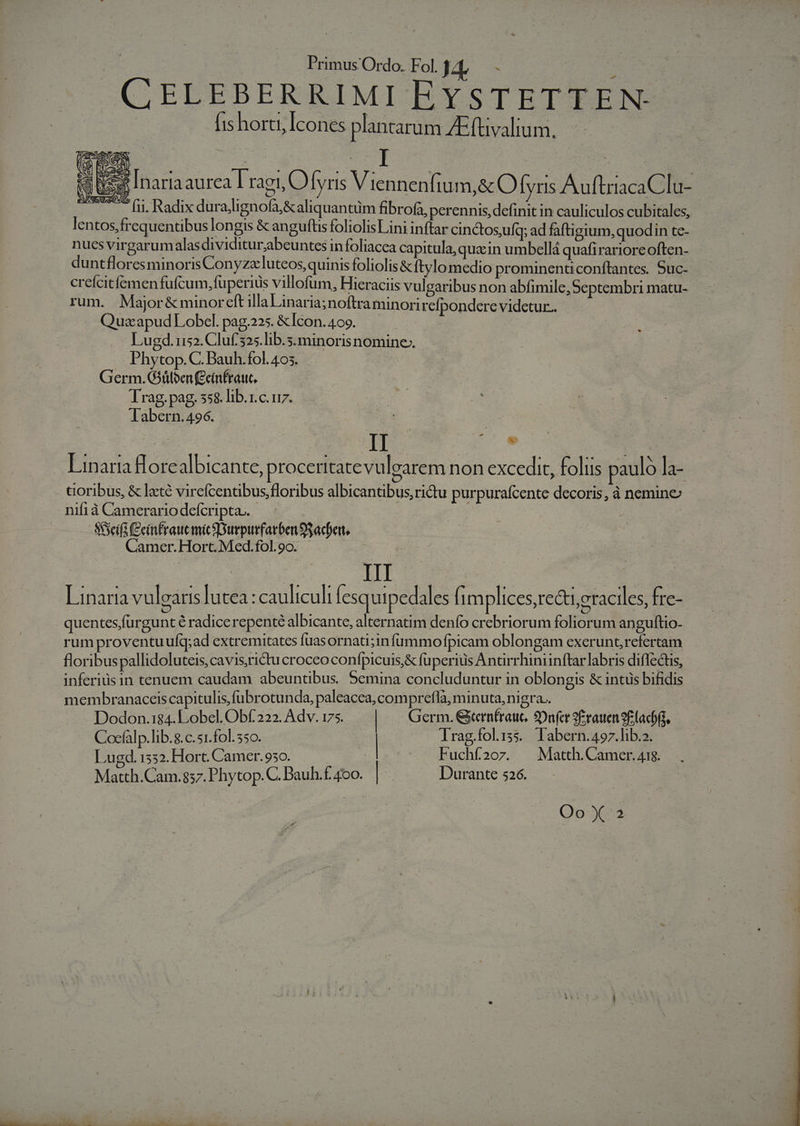 Primus Ordo. Fol. 14.
CELEBERRIMI EYSTETTEN-
ſis horti, Icones plantarum Æſtivalium.
I
LInaria aurea Tragi, Oſyris Viennenſium, & Oſyris Auſtriaca Clu-
ſii. Radix dura, lignoſa, & aliquantùm fibroſa, perennis, definit in cauliculos cubitales,
lentos, frequentibus longis & anguſtis foliolis Lini inſtar cinctos, uſq; ad faſtigium, quod in te-
nues virgarum alas dividitur, abeuntes in foliacea capitula, quæ in umbellâ quaſi rariore oſten-
dunt flores minoris Conyzæ luteos, quinis foliolis & ſtylo medio prominenti conſtantes. Suc-
creſcit ſemen fuſcum, ſuperiùs villoſum, Hieraciis vulgaribus non abſimile, Septembri matu-
rum. Major & minor eſt illa Linaria; noſtra minori reſpondere videtur.
Quæ apud Lobel. pag. 225. & Icon. 409.
Lugd. 1152. Cluſ. 325. lib. 3. minoris nomine.
Phytop. C. Bauh. fol. 403.
Germ. Gülden Leinkraut.
Trag. pag. 358. lib. 1. c. 117.
Tabern. 496.
II
Linaria flore albicante, proceritate vulgarem non excedit, foliis paulò la-
tioribus, & lætè vireſcentibus, floribus albicantibus, rictu purpuraſcente decoris, à nemine
niſi à Camerario deſcripta.
Weiß Leinkraut mit Purpurfarben Rachen.
Camer. Hort. Med. fol. 90.
III
Linaria vulgaris lutea: cauliculi ſesquipedales ſimplices, recti, graciles, fre-
quentes, ſurgunt è radice repentè albicante, alternatim denſo crebriorum foliorum anguſtio-
rum proventu uſq; ad extremitates ſuas ornati; in ſummo ſpicam oblongam exerunt, refertam
floribus pallido luteis, cavis, rictu croceo conſpicuis, & ſuperiùs Antirrhini inſtar labris diſſectis,
inferiùs in tenuem caudam abeuntibus. Semina concluduntur in oblongis & intùs bifidis
membranaceis capitulis, ſubrotunda, paleacea, compreſſa, minuta, nigra.
Dodon. 184. Lobel. Obſ. 222. Adv. 175.
Cœſalp. lib. 8. c. 51. fol. 350.
Lugd. 1332. Hort. Camer. 930.
Matth. Cam. 857. Phytop. C. Bauh. f. 400.
Germ. Sternkraut. Unſer Frauen Flachß.
Trag. fol. 135. Tabern. 497. lib. 2.
Fuchſ. 207. Matth. Camer. 418.
Durante 526.
Oo )( 2